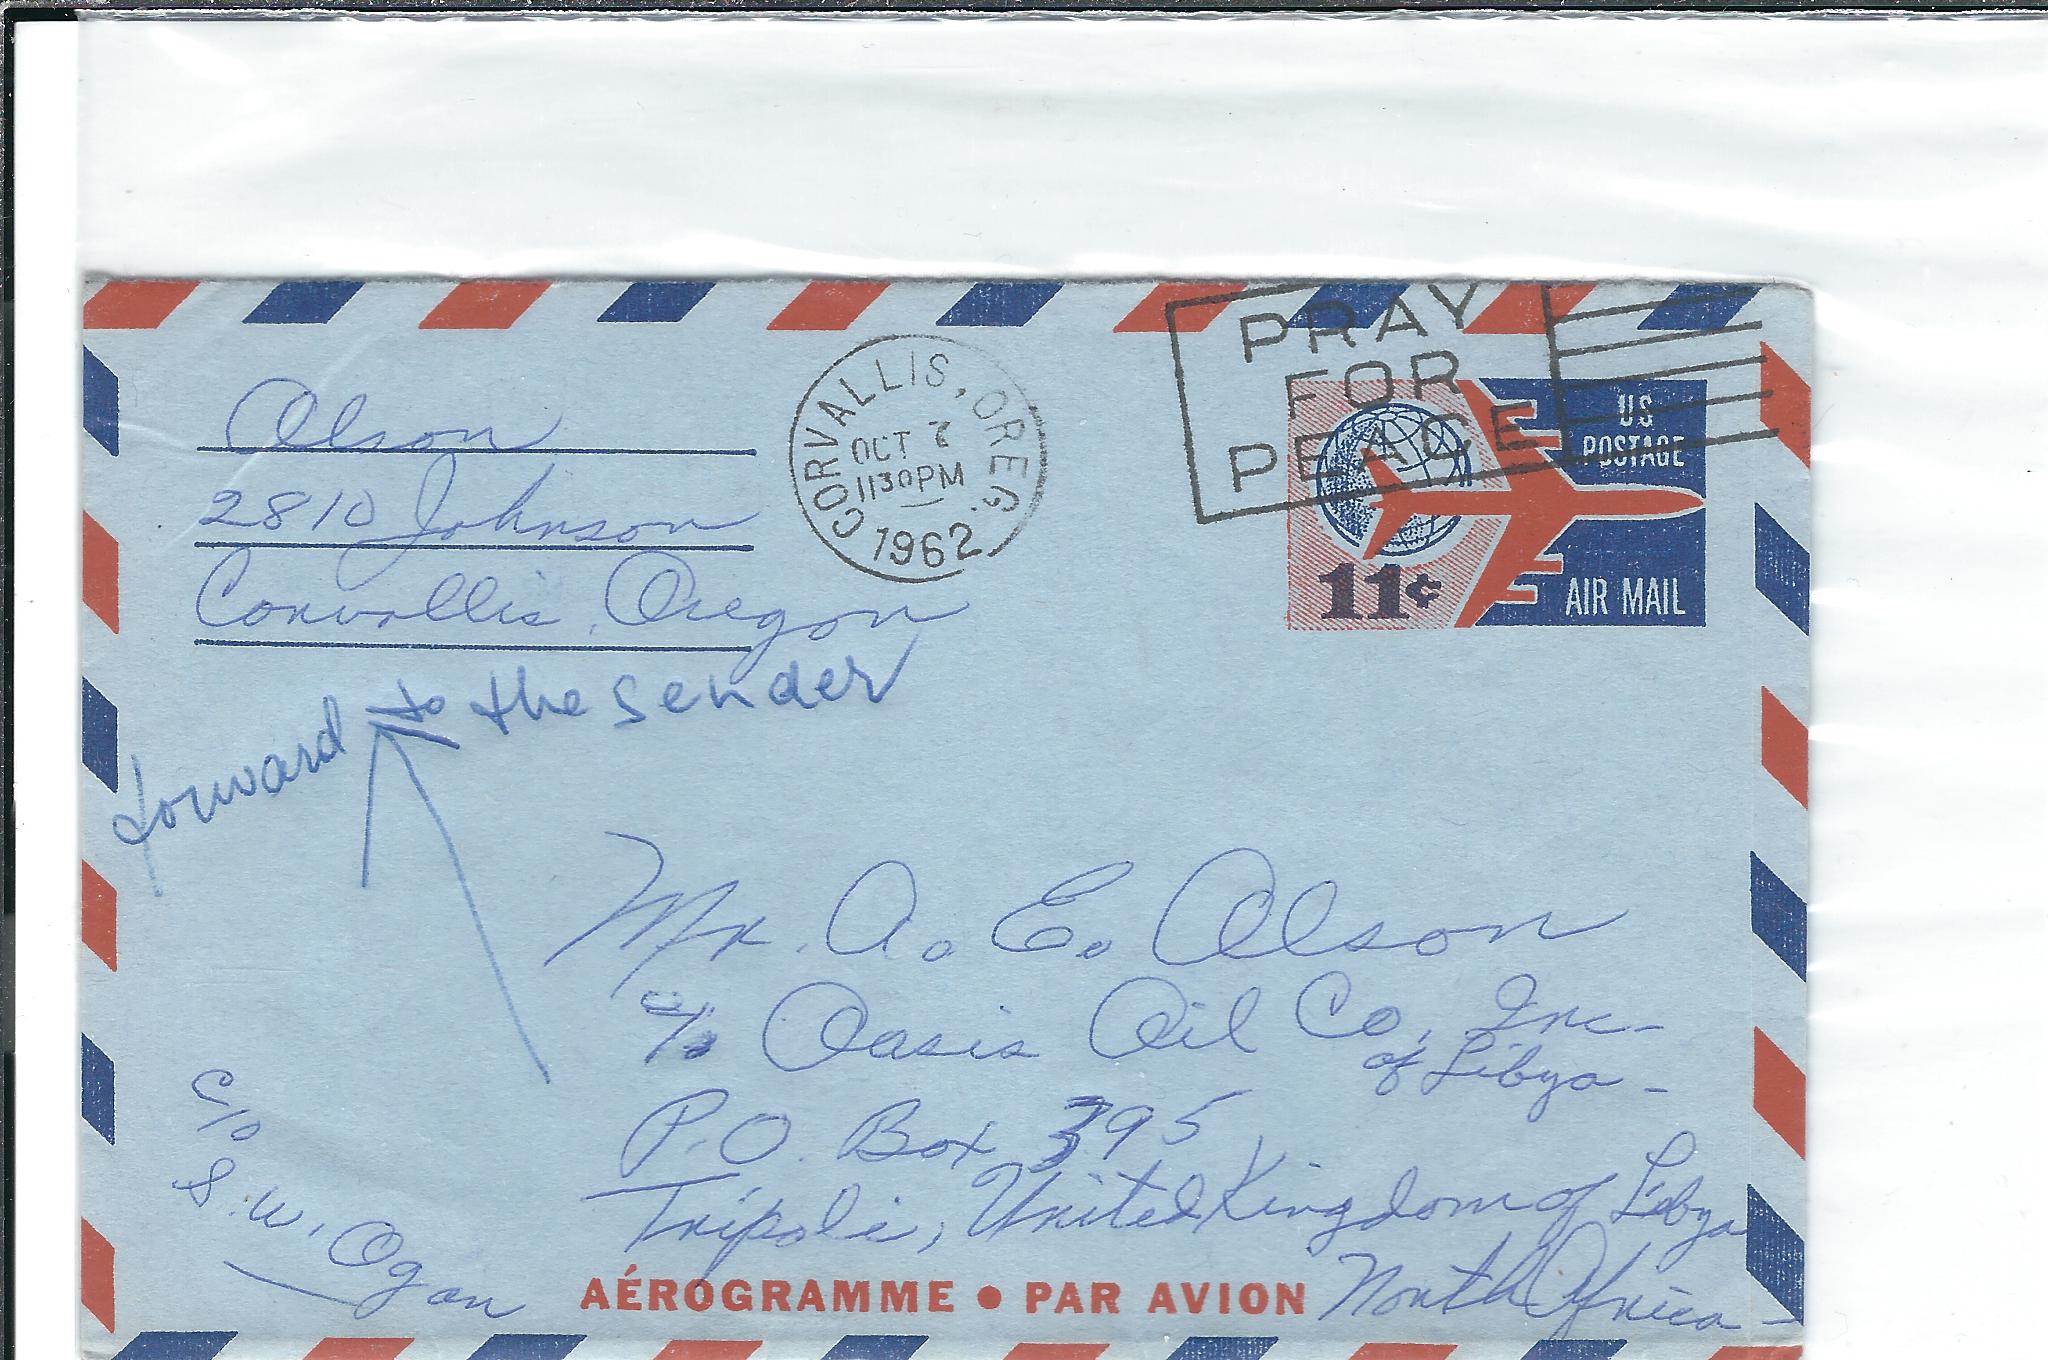 Olson
2810 Johnson
Corvallis, Oregon
CORVALLIS, OREG.
OCT 7
1130PM
1962
PRAY
FOR
PEACE
US
POSTAGE
11¢
AIR MAIL
forward to the sender
Mr. A. E. Olson
c/o Oasis Oil Co, Inc-
of Libya-
P.O. Box 395
Tripoli, United Kingdom of Libya
North Africa-
c/o
S.W. Ogan
AÉROGRAMME • PAR AVION